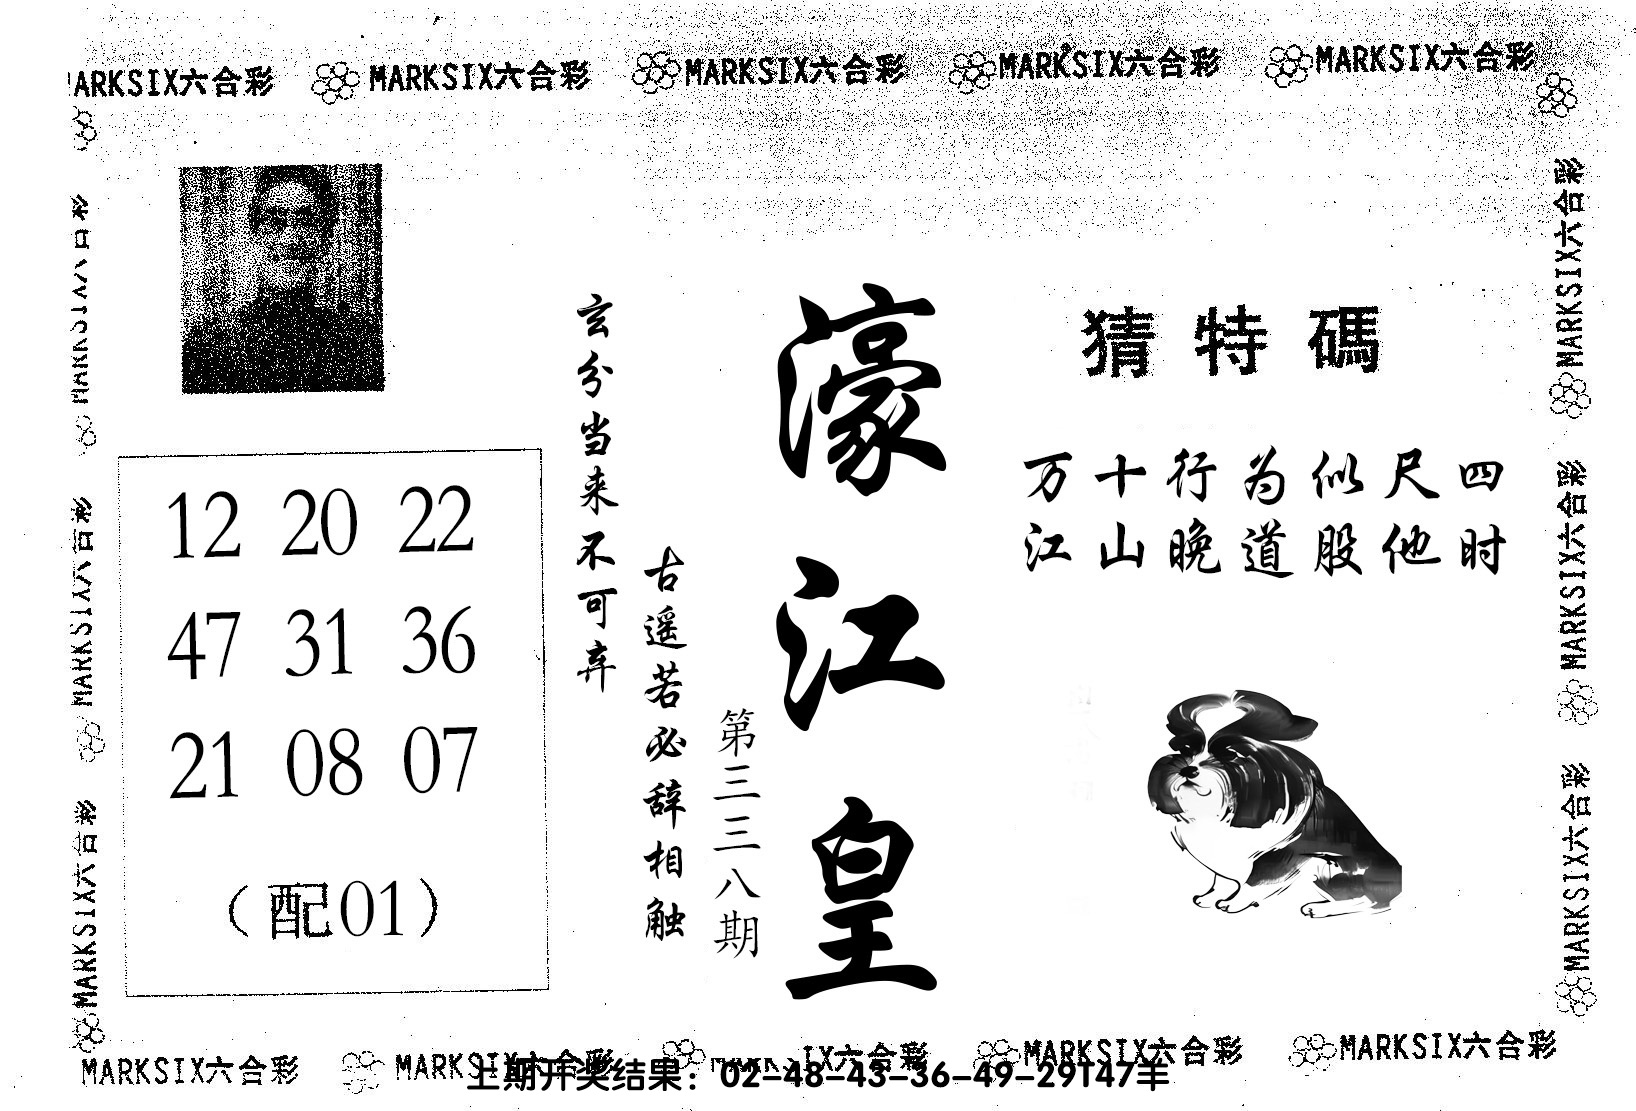 MARKSIX六合彩 MARKSIX六合彩 MARKSIX六合彩 MARKSIX六合彩 MARKSIX六合彩
猜特碼
万十行为似尺四
江山晚道股他时
濠江皇
第三三八期
古遥若必辞相触
玄分当来不可弃
12 20 22
47 31 36
21 08 07
（配01）
MARKSIX六合彩
MARKSIX六合彩
MARKSIX六合彩
MARKSIX六合彩
MARKSIX六合彩
MARKSIX六合彩
MARKSIX六合彩 MARKSIX六合彩 IX六合彩 MARKSIX六合彩 MARKSIX六合彩
上期开奖结果：02-48-43-36-49-29T47羊